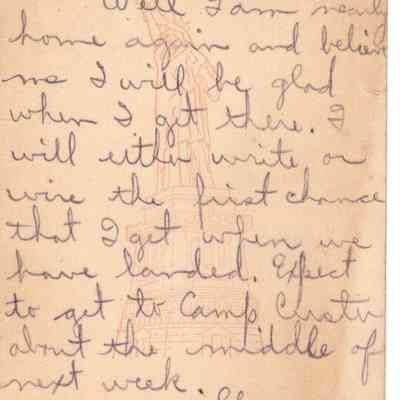 Well I am nearly
home again and believe
me I will be glad
when I get there. I
will either write or
wire the first chance
that I get when we
have landed. Expect
to get to Camp Custer
about the middle of
next week.